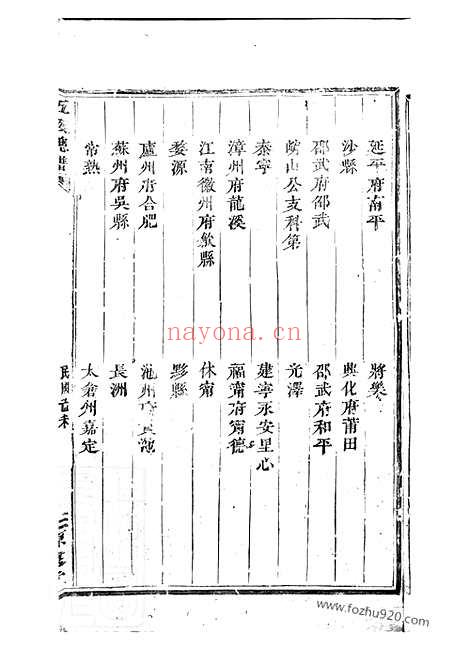 延平府南平 將樂
沙縣 興化府莆田
邵武府邵武 邵武府和平
嶠山公支科第 光澤
泰寧 建寧永安里心
漳州府龍溪 福甯府甯德
江南徽州府歙縣 休甯
婺源 黟縣
廬州府合肥 池州
蘇州府吳縣 長洲
常熟 太倉州嘉定
民國
nayona.cn
www.fozhu920.com